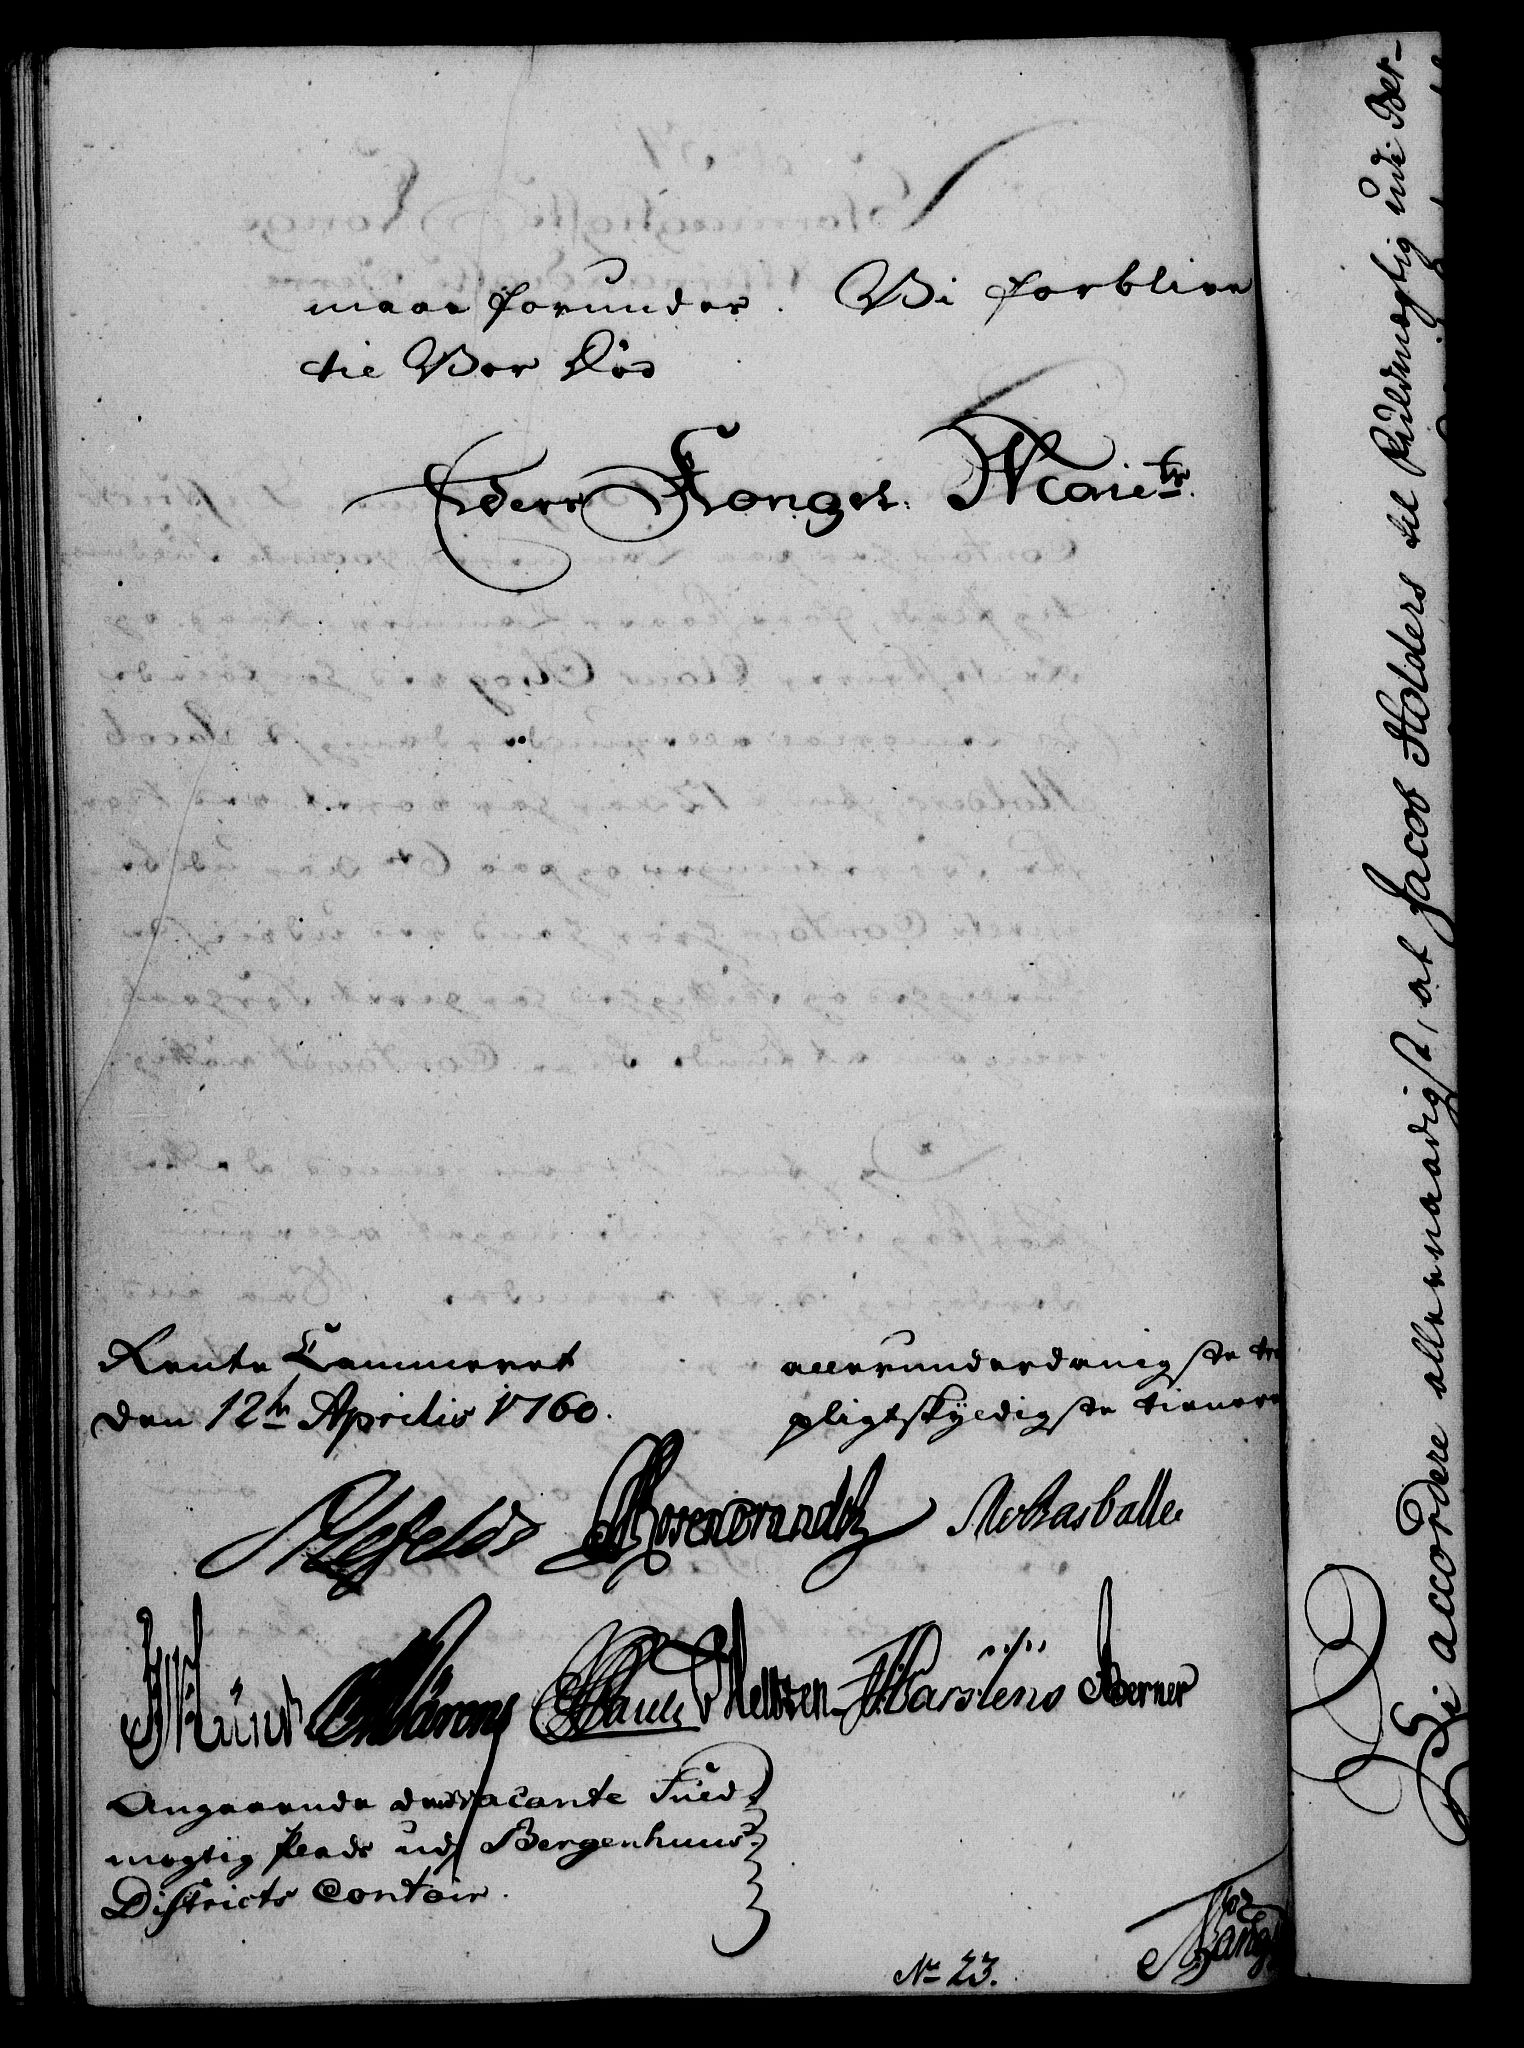 maae forunder. Vi forblive
til Vor Død
Eders Konges. Maiets.
Rente Cammeret
den 12te Aprilis 1760.
allerunderdanigste
pligtskyldigste tienere
Ahlefeldt Rosencrandtz
Wärens Paul Carstens Berner
Angaaende den vacante Fuld-
mægtig Plads udj Bergenhuus
Districts Contoir.
No 23.
Vi accordere allernaadigst, at Jacob Holders til fuldmægtig udi Ber-